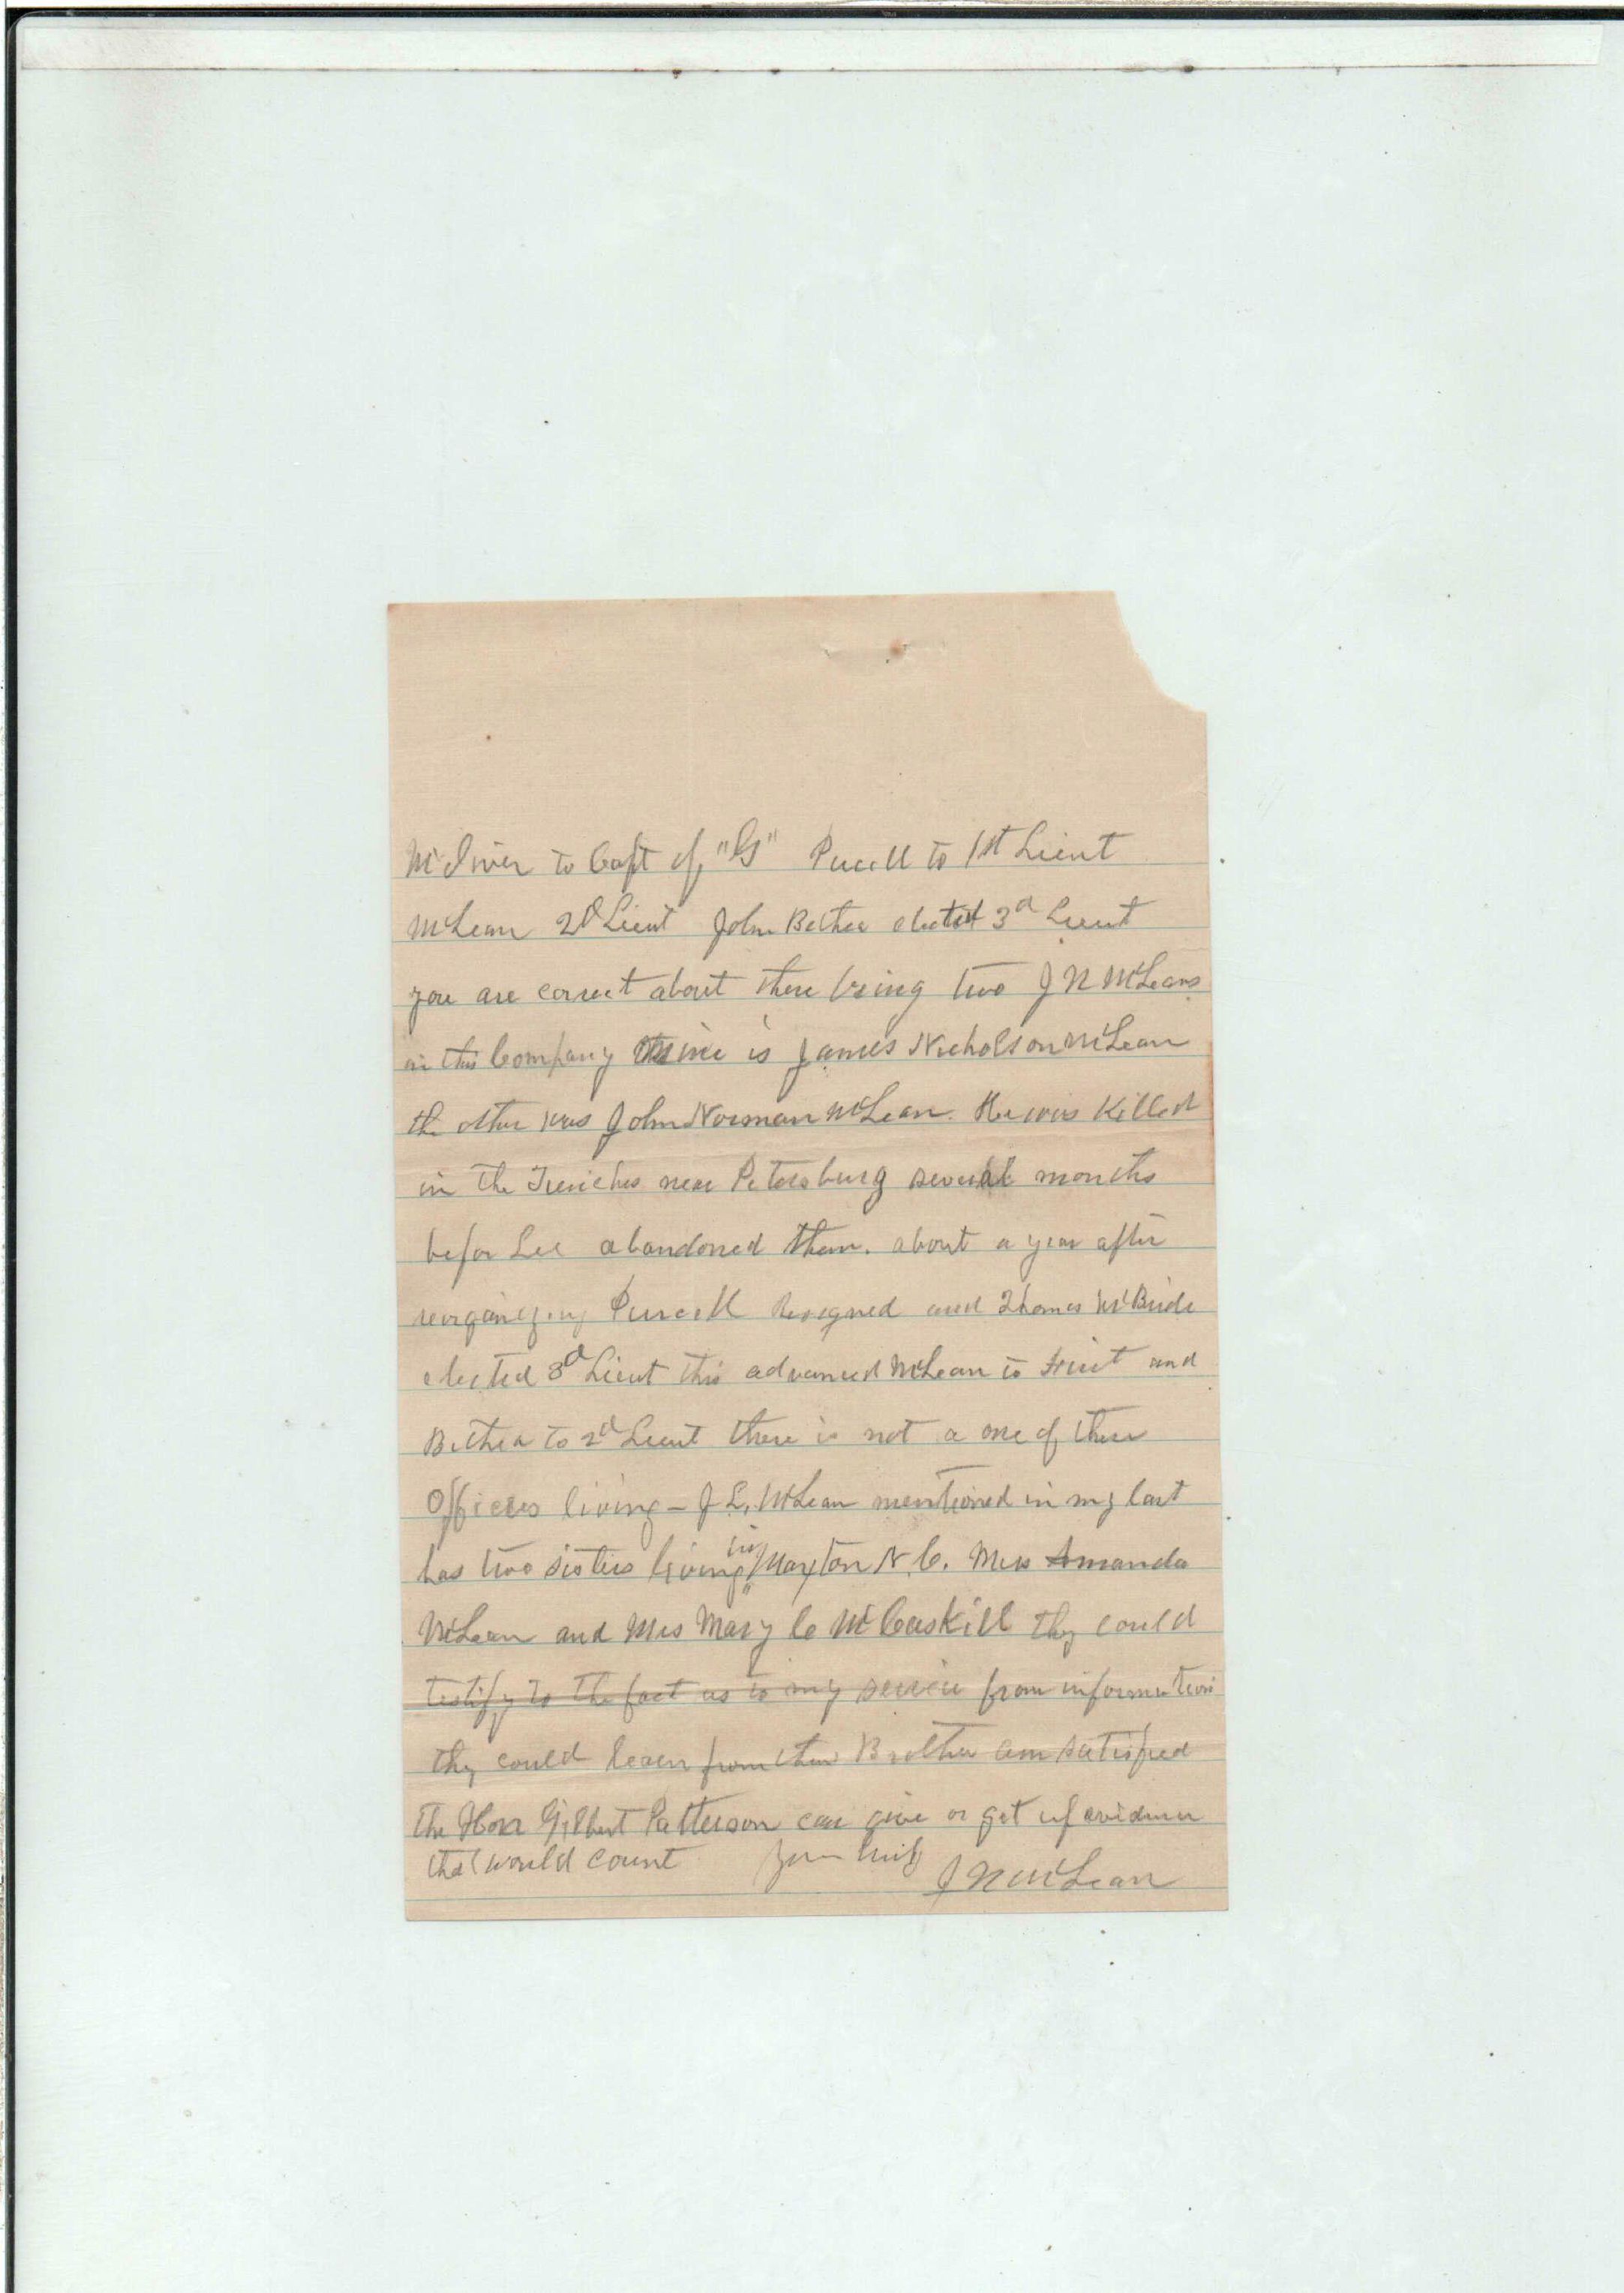 McIver to Capt of "G" Purcell to 1st Lieut
McLean 2d Lieut John Bethea elected 3d Lieut
you are correct about there being two J N McLeans
in this Company Mine is James Nicholson McLean
the other was John Norman McLean. He was Killed
in the Trenches near Petersburg several months
befor Lee abandoned them. about a year after
reorganizing Purcell Resigned and Thomas McBride
elected 3d Lieut this advanced McLean to First and
Bethea to 2d Lieut there is not a one of these
Officers living - J L. McLean mentioned in my last
has two sisters living in Maxton N. C. Miss Amanda
McLean and Mrs Mary C McCaskill they could
testify to the fact as to my service from information
they could learn from their Brother am satisfied
The Hon Gilbert Patterson can give or get up evidence
that would count Yours truly
J N McLean